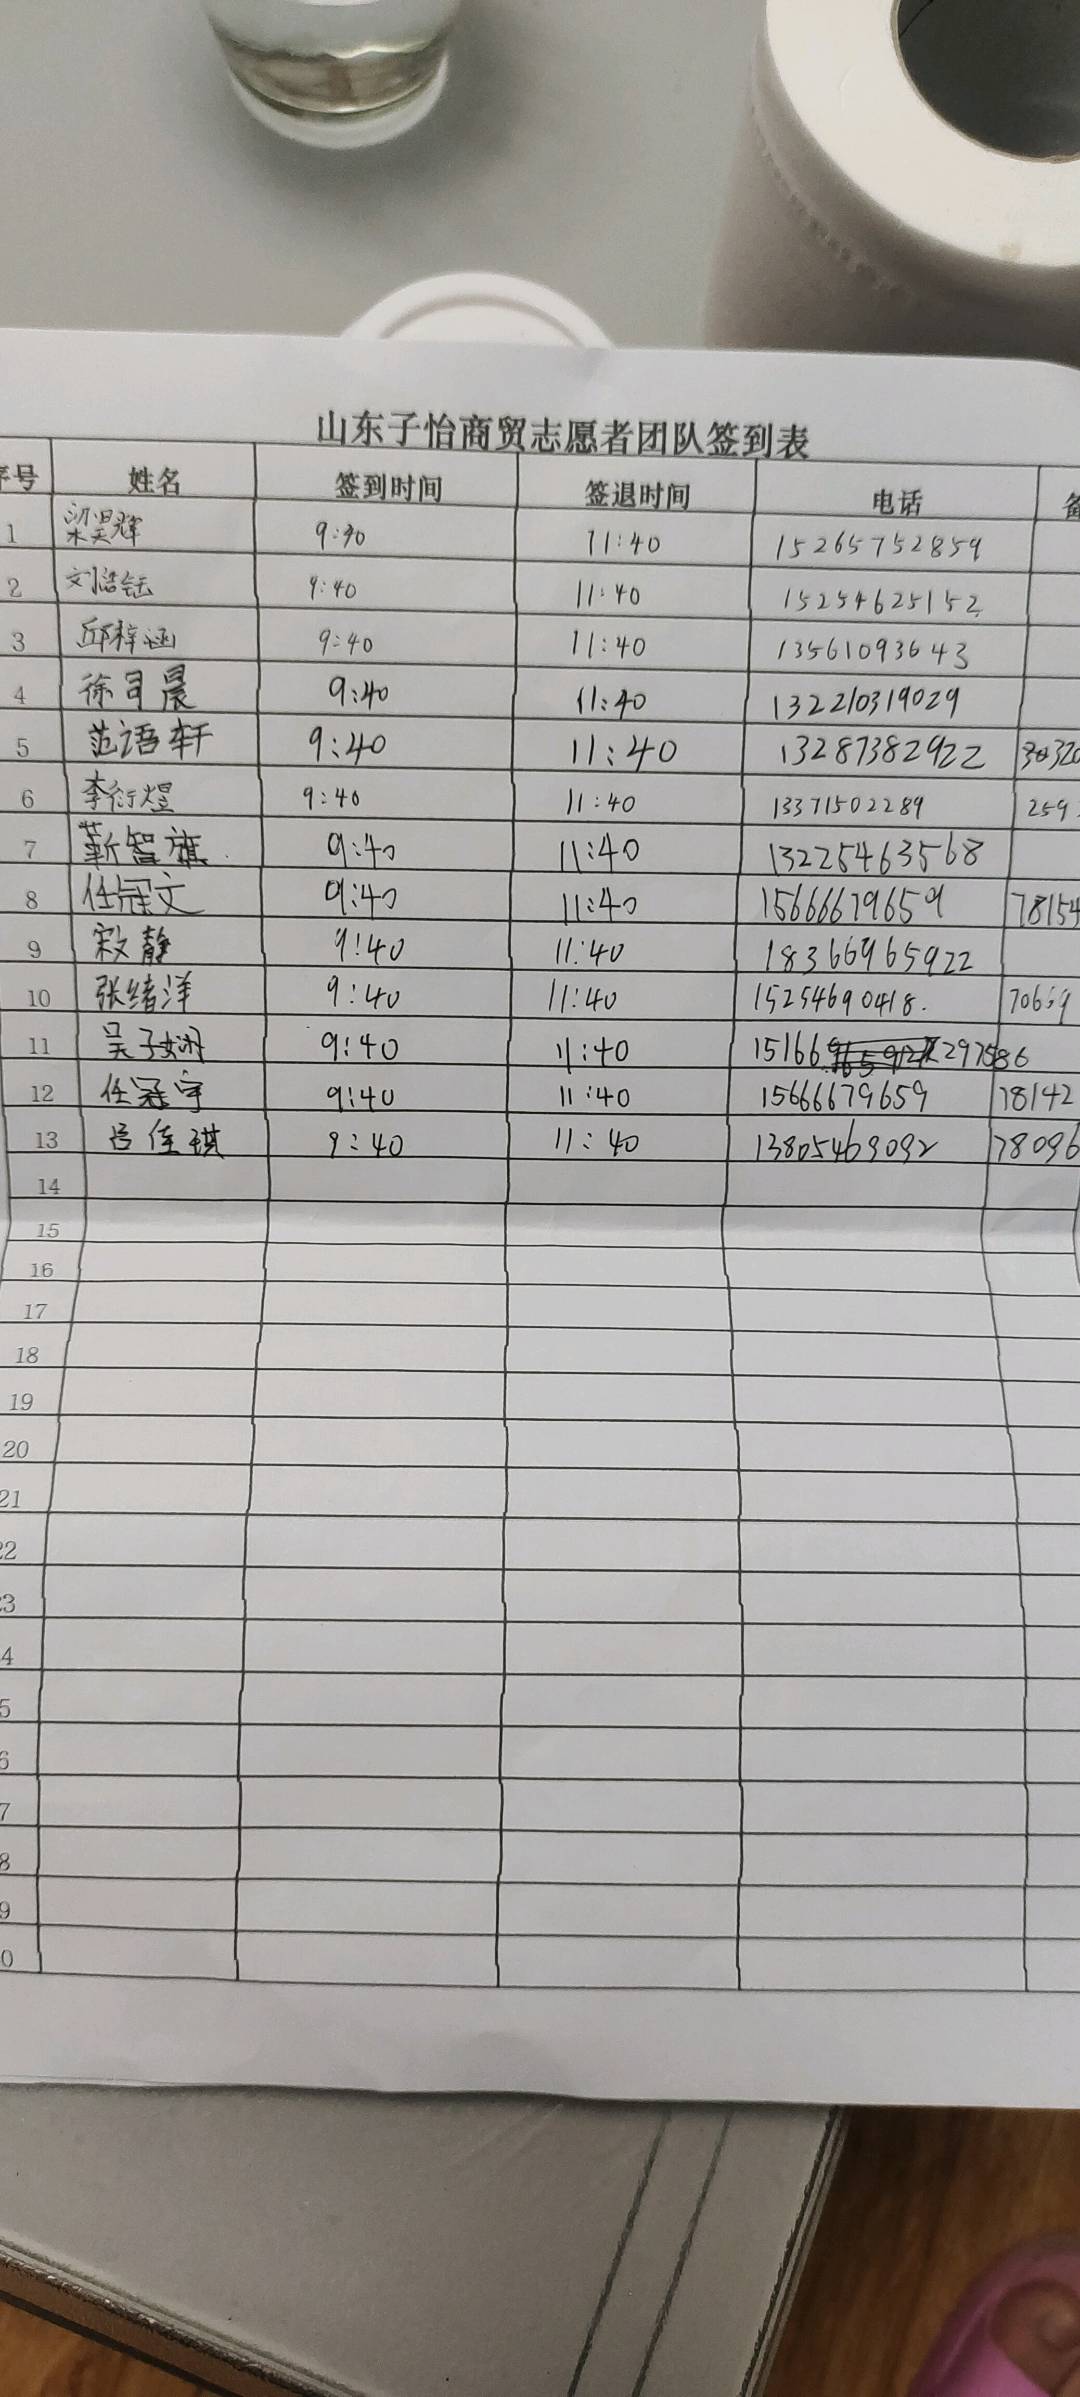 山东子怡商贸志愿者团队签到表
序号 姓名 签到时间 签退时间 电话 备
1 梁昊辉 9:40 11:40 15265752859
2 刘浩钰 9:40 11:40 15254625152
3 邱梓涵 9:40 11:40 13561093643
4 徐司晨 9:40 11:40 132210319029
5 范语轩 9:40 11:40 13287382922
6 李衍煜 9:40 11:40 13371502289 259
7 靳智旗 9:40 11:40 13225463568
8 任冠文 9:40 11:40 15666679659 78154
9 静 9:40 11:40 18366965922
10 张绪洋 9:40 11:40 15254690418. 70659
11 吴子娴 9:40 11:40 15166297586
12 任冠宇 9:40 11:40 15666679659 78142
13 吕佳琪 9:40 11:40 13805469092 78096
14
15
16
17
18
19
20
21
22
23
4
5
6
7
8
9
0